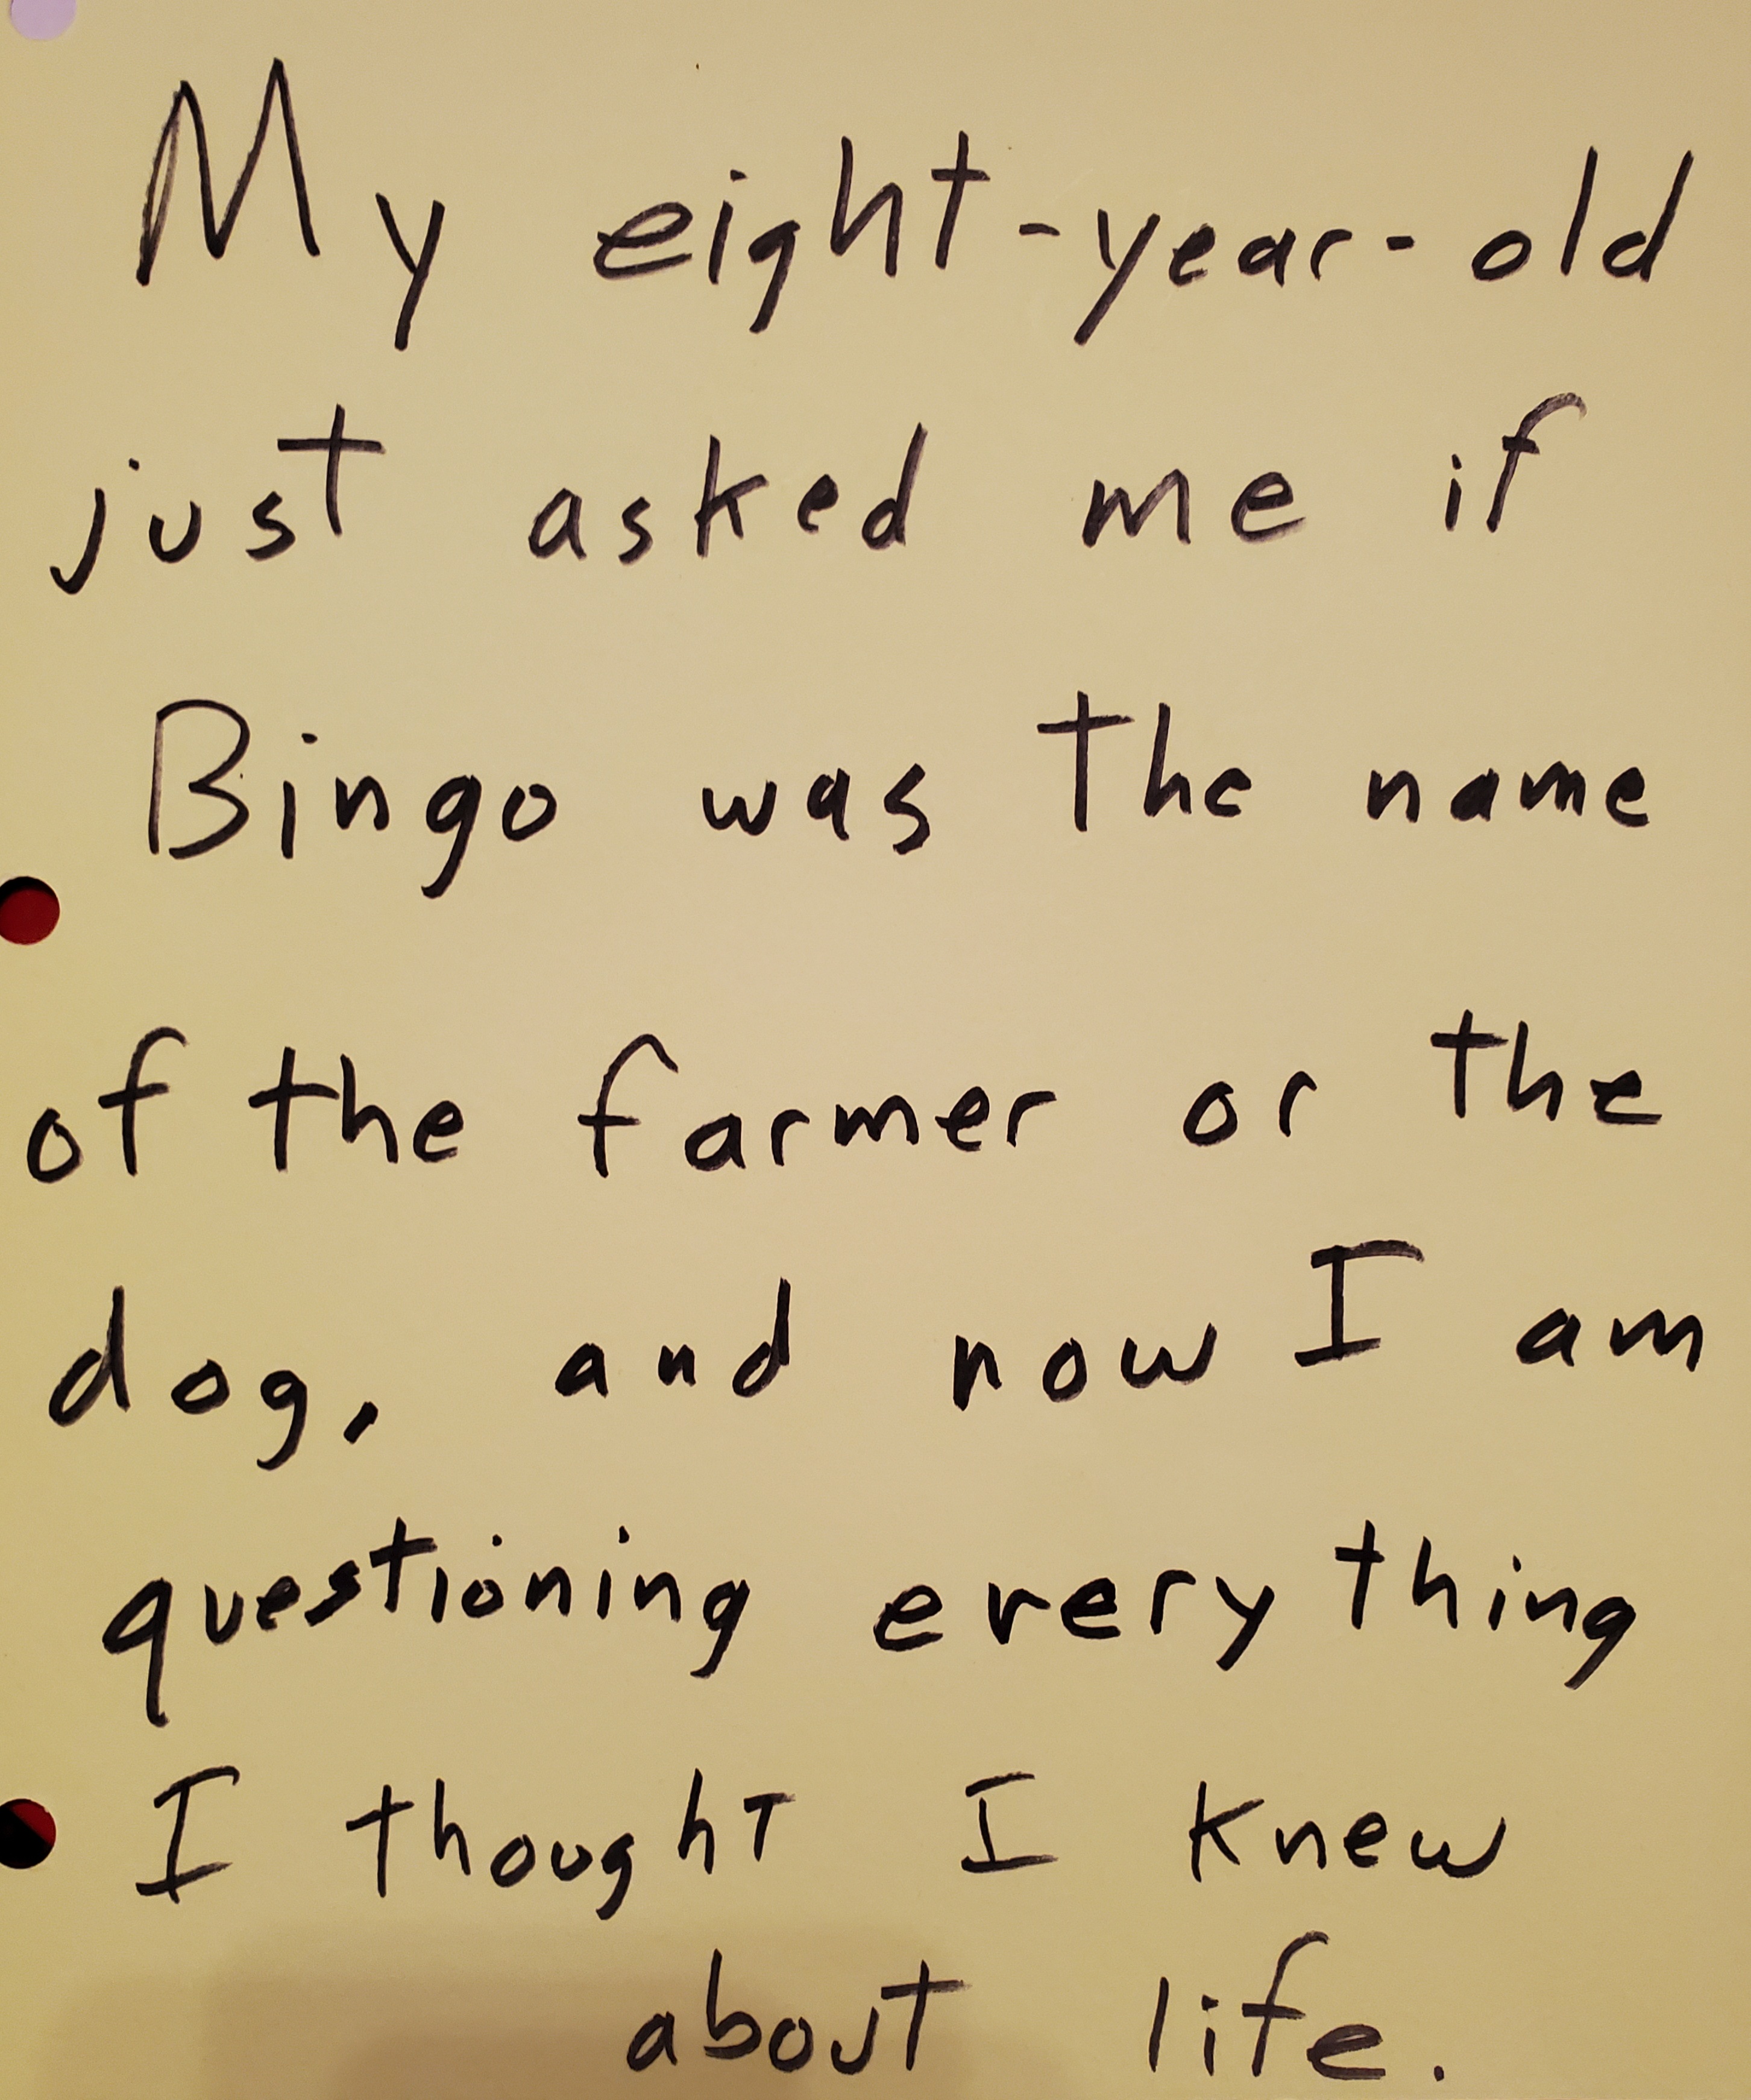 My eight-year-old
just asked me if
Bingo was the name
of the farmer or the
dog, and now I am
questioning everything
I thought I knew
about life.